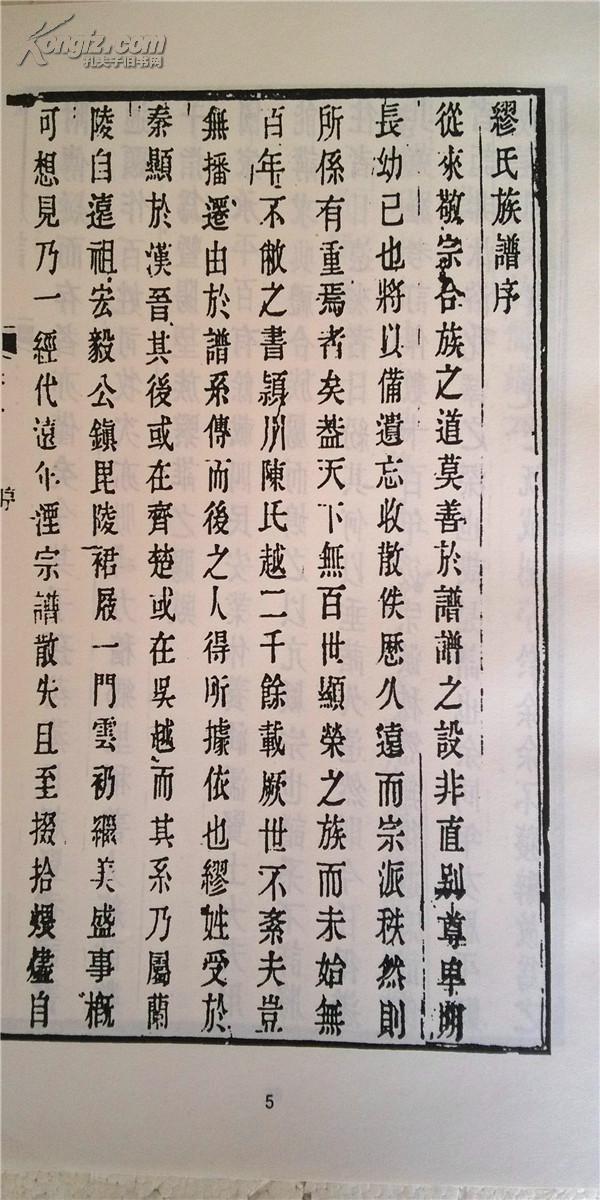 Kongfz.com
孔夫子旧书网
繆氏族譜序
從來敬宗合族之道莫善於譜譜之設非直别尊卑明
長幼已也將以備遺忘收散佚歷久遠而宗派秩然則
所係有重焉者矣葢天下無百世顯榮之族而未始無
百年不敝之書潁川陳氏越二千餘載厥世不紊夫豈
無播遷由於譜系傳而後之人得所據依也繆姓受於
秦顯於漢吾其後或在齊楚或在吳越而其系乃屬蘭
陵自遠祖宏毅公鎮毘陵裙屐一門雲礽繼美盛事概
可想見乃一經代遠年湮宗譜散失且至掇拾煨儘自
序
5